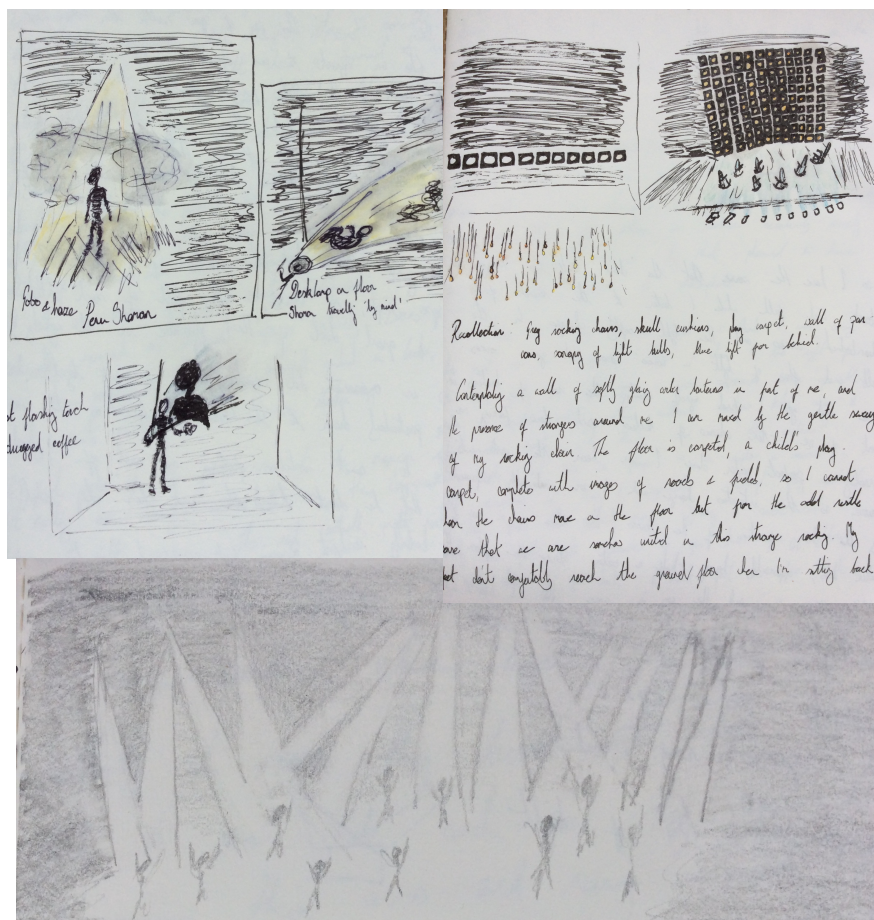 Peru Shaman
Desk lamp on floor
Shaman travelling 'by mind'
flashing torch
drugged coffee
Recollection: Grey rocking chairs, skull cushions, play carpet, wall of par
cans, canopy of light bulbs, blue light from behind.
Contemplating a wall of softly glowing amber lanterns in front of me, and
the presence of strangers around me I am moved by the gentle swaying
of my rocking chair The floor is carpeted, a child's play
carpet, complete with images of roads & fields, so I cannot
hear the chairs move on the floor but from the odd rustle
that we are somehow united in this strange rocking. My
don't comfortably reach the ground floor when I'm sitting back